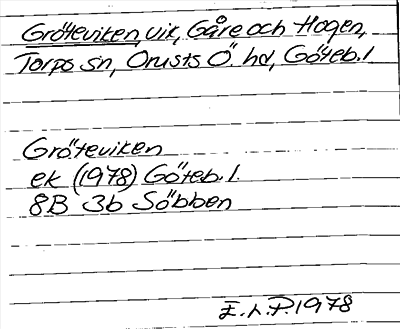 Gröteviken, vik, Gåre och Hogen,
Torps sn, Orusts Ö. hd, Göteb. l
Gröteviken
ek (1978) Göteb. l.
8B 3b Söbben
E. L. P. 1978